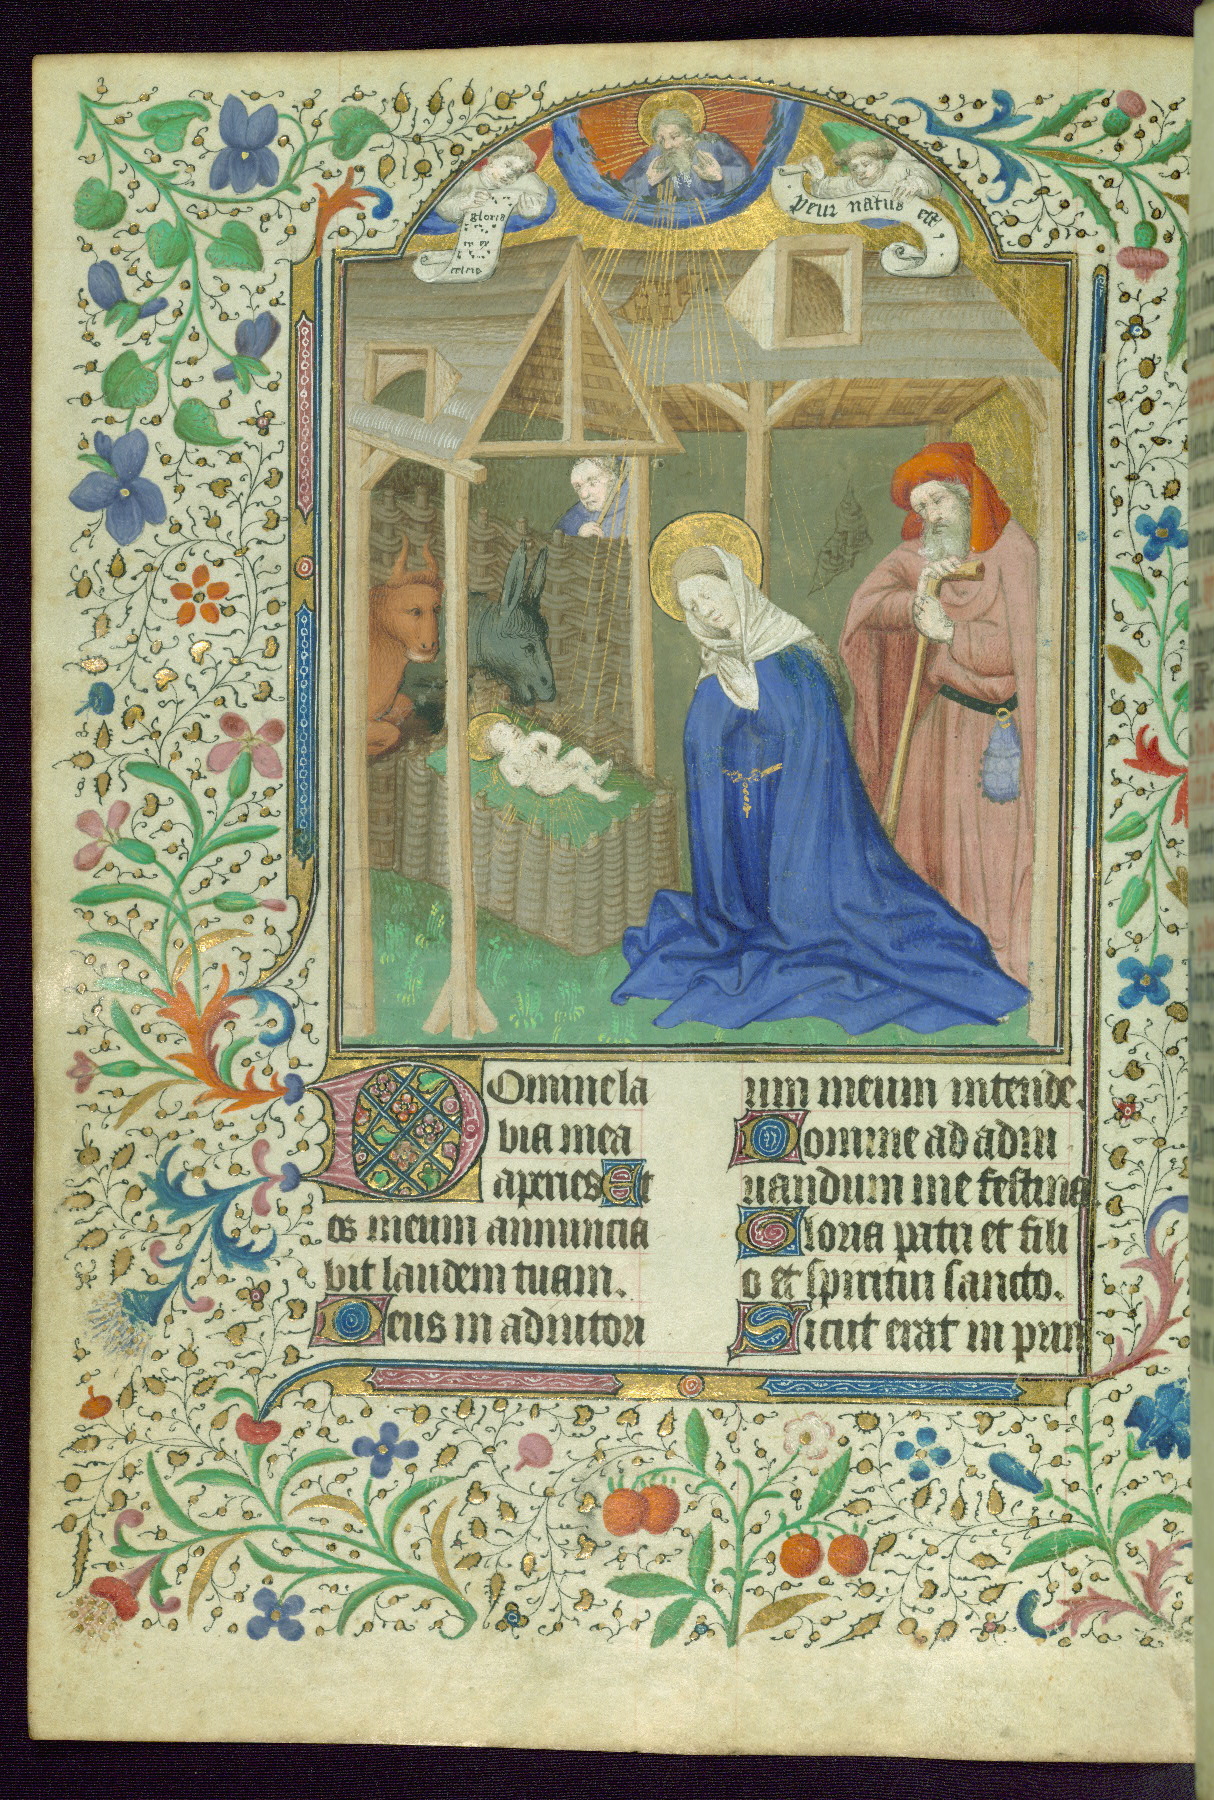 gloria
puer natus est
Domine la
bia mea
aperies Et
os meum annuncia
bit laudem tuam.
Deus in adiutori
um meum intende.
Domine ad adiu
uandum me festina
Gloria patri et fili
o et spiritui sancto.
Sicut erat in prin